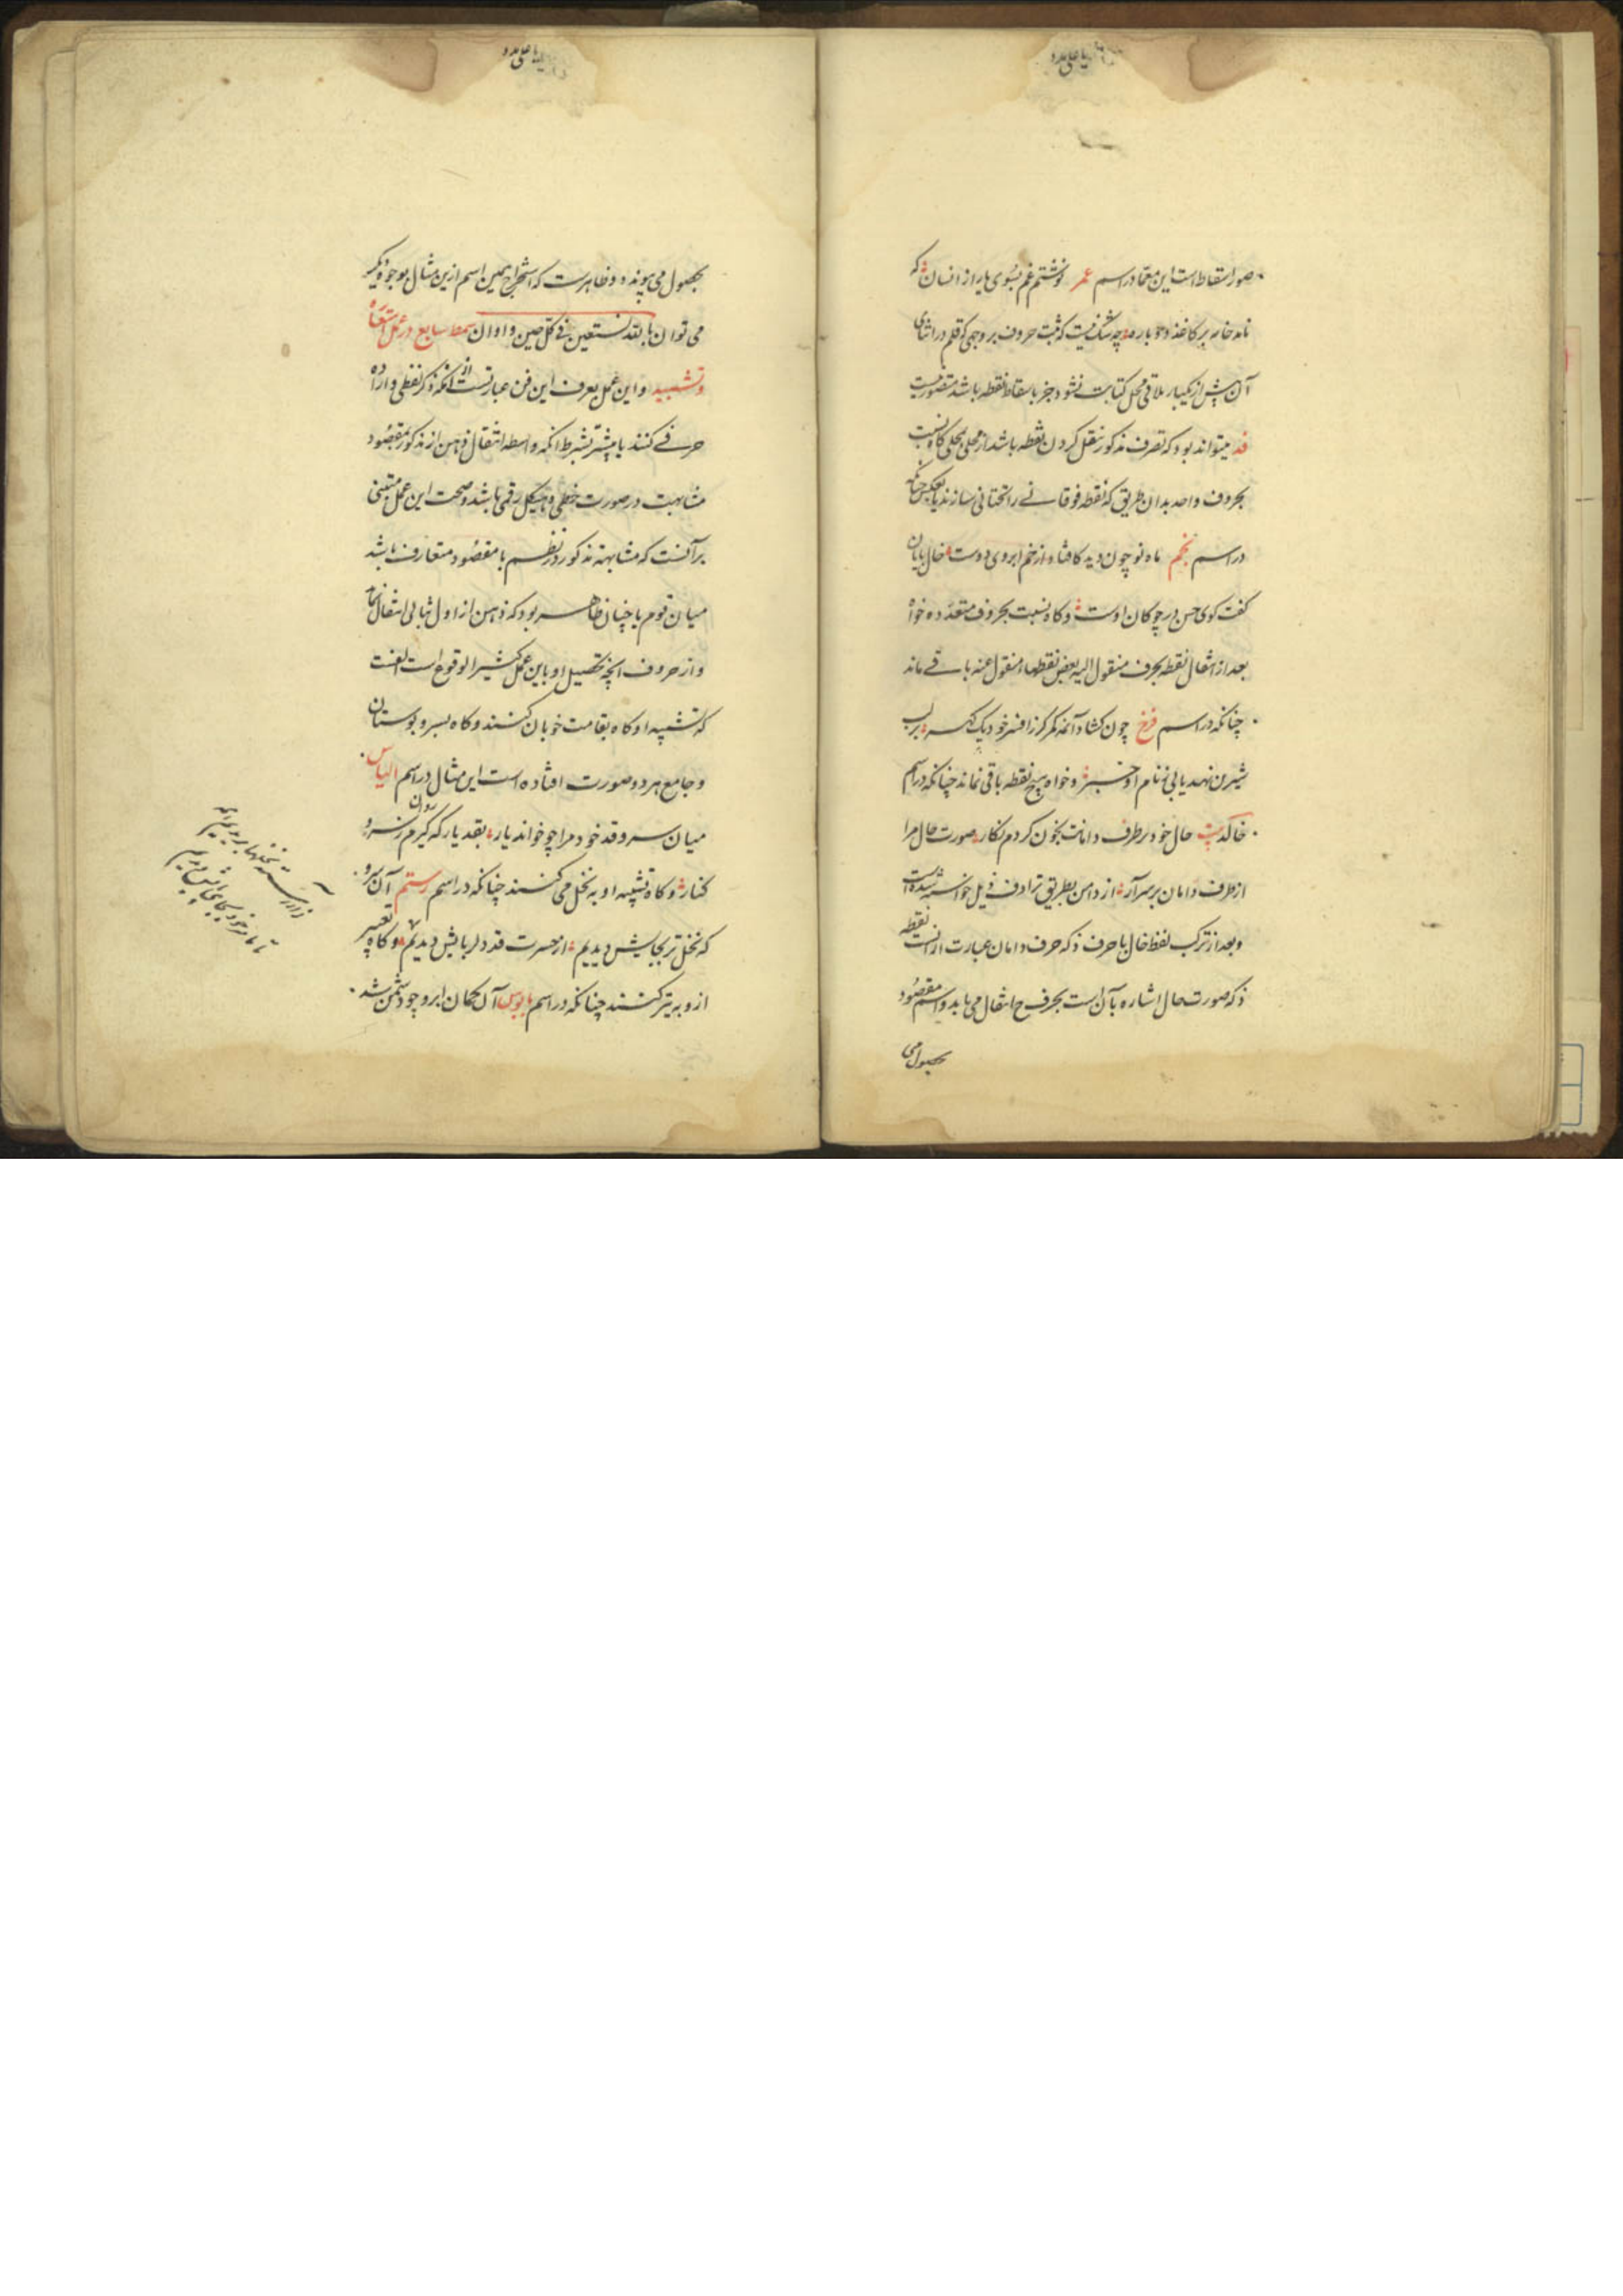 یا علی مدد
صور اسقاط است این معما در اسم عمر نوشتم غم بسوی یار از انسان که
ماند خامه بر کاغذ دو باره چه شک نیست که ثبت حروف بر وجهی که قلم در اثنای
آن بیش از یکبار ملاقی محل کتابت نشود جز باسقاط نقطه باشد متصور نیست
قد میتواند بود که تصرف مذکور بنقل کردن نقطه باشد از محلی بمحلی کاه نسبت
بحروف واحد بدان طریق که نقطه فوقانی را تحتانی سازند یا بعکس چنانکه
در اسم نجم ماه نو چون دید کافتاد از خم ابروی دوست خال پایان
کفت کوی حسن در چوکان اوست و کاه نسبت بحروف متعدده خواه
بعد از انتقال نقطه بحرف منقول الیه بعض نقطها منقول عنه باقی ماند
چنانکه در اسم فرخ چون کشاد آنمه کمر کز افسر خود یک کهر بر لب
شیرین نهد یابی ز نام او خبر و خواه هیچ نقطه باقی نماند چنانکه در اسم
خالد حال خود بر طرف دامانت بخون کردم نکار صورت حال مرا
از طرف دامان بر سر آر از دامن بطریق ترادف ذیل خواسته شده است
و بعد از ترکیب لفظ خال با حرف ذ که حرف دامان عبارت از آنست نقطه
ذ که صورت حال اشاره بآن است بحرف ح انتقال می یابد و اسم مقصود
بحصول می
یا علی مدد
بحصول می پیوندد و ظاهرست که استخراج همین اسم ازین مثال بوجوه دیکر
می توان بالله نستعین فی کل حین و اوان سمط سابع در عمل استعاره
و تشبیه و این عمل بعرف این فن عبارتست از آنکه ذکر لفظی و اراده
حرفی کنند یا بیشتر بشرط آنکه واسطه انتقال ذهن از مذکور بمقصود
مشابهت در صورت خطی و هیکل رقمی باشد و صحت این عمل مبتنی
بر آنست که مشابهت مذکور در نظم با مقصود متعارف باشد
میان قوم یا چنان ظاهر بود که ذهن از اول بثانی انتقال نماید
و از حروف آنچه تحصیل او باین عمل کثیر الوقوع است الفست
که تشبیه او کاه بقامت خوبان کنند و کاه بسرو بوستان
و جامع هر دو صورت افتاده است این مثال در اسم الیاس
میان سرو قد خود مرا چو خواند یار بقد یار که کیرم ز سرو روان
کنار و کاه تشبیه او به نخل می کنند چنانکه در اسم رستم آن سرو
که نخل تر بجایش دیدیم از حسرت قد دلربایش دیدیم و کاه تعبیر
ازو به تیر کنند چنانکه در اسم یونس آن کمان ابرو چو دشمن شد